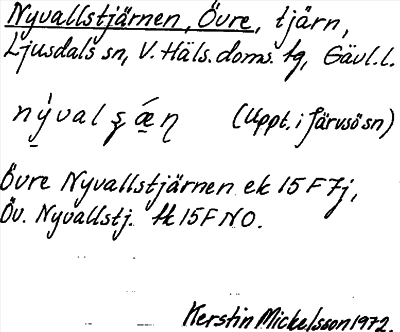 Nyvallstjärnen, Övre, tjärn,
Ljusdals sn, V. Häls. doms. tg, Gävl. l.
(Uppt. i Järvsö sn)
Övre Nyvallstjärnen ek 15 F 7j,
Öv. Nyvallstj. tk 15 F NO.
Kerstin Mickelsson 1972.